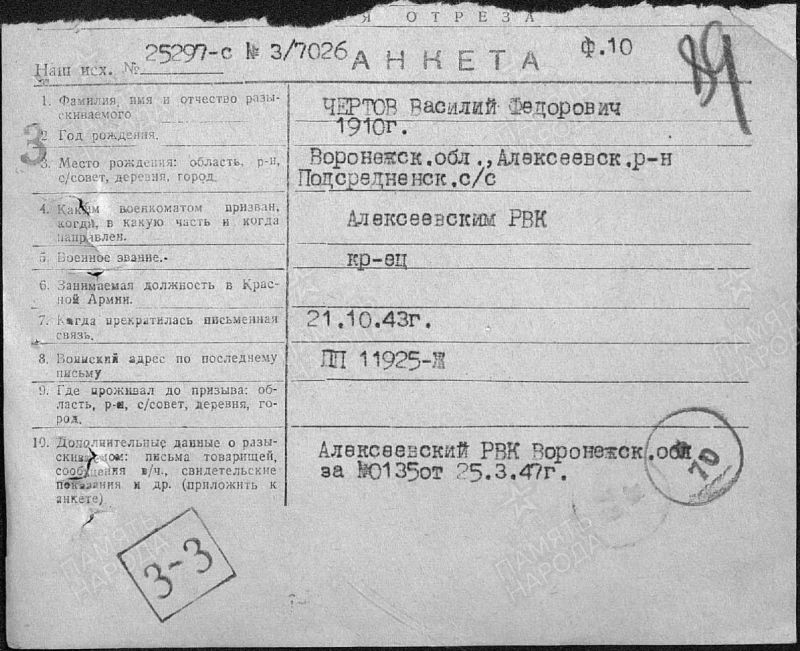 Я ОТРЕЗА
Наш исх. № 25297-с № 3/7026 АНКЕТА Ф.10
89
1. Фамилия, имя и отчество разы-
скиваемого
ЧЕРТОВ Василий Федорович
2. Год рождения.
1910г.
3
3. Место рождения: область, р-н,
с/совет, деревня, город.
Воронежск.обл.,Алексеевск.р-н
Подсредненск.с/с
4. Каким военкоматом призван,
когда, в какую часть и когда
направлен.
Алексеевским РВК
5. Военное звание.-
кр-ец
6. Занимаемая должность в Крас-
ной Армии.
7. Когда прекратилась письменная
связь.
21.10.43г.
8. Воинский адрес по последнему
письму
ПП 11925-Ж
9. Где проживал до призыва: об-
ласть, р-н, с/совет, деревня, го-
род.
10. Дополнительные данные о разы-
скиваемом: письма товарищей,
сообщения в/ч., свидетельские
показания и др. (приложить к
анкете)
Алексеевский РВК Воронежск.обл
за №0135от 25.3.47г.
70
3-3
ПАМЯТЬ
НАРОДА
ПАМЯТЬ
НАРОДА
ПАМЯТЬ
НАРОДА